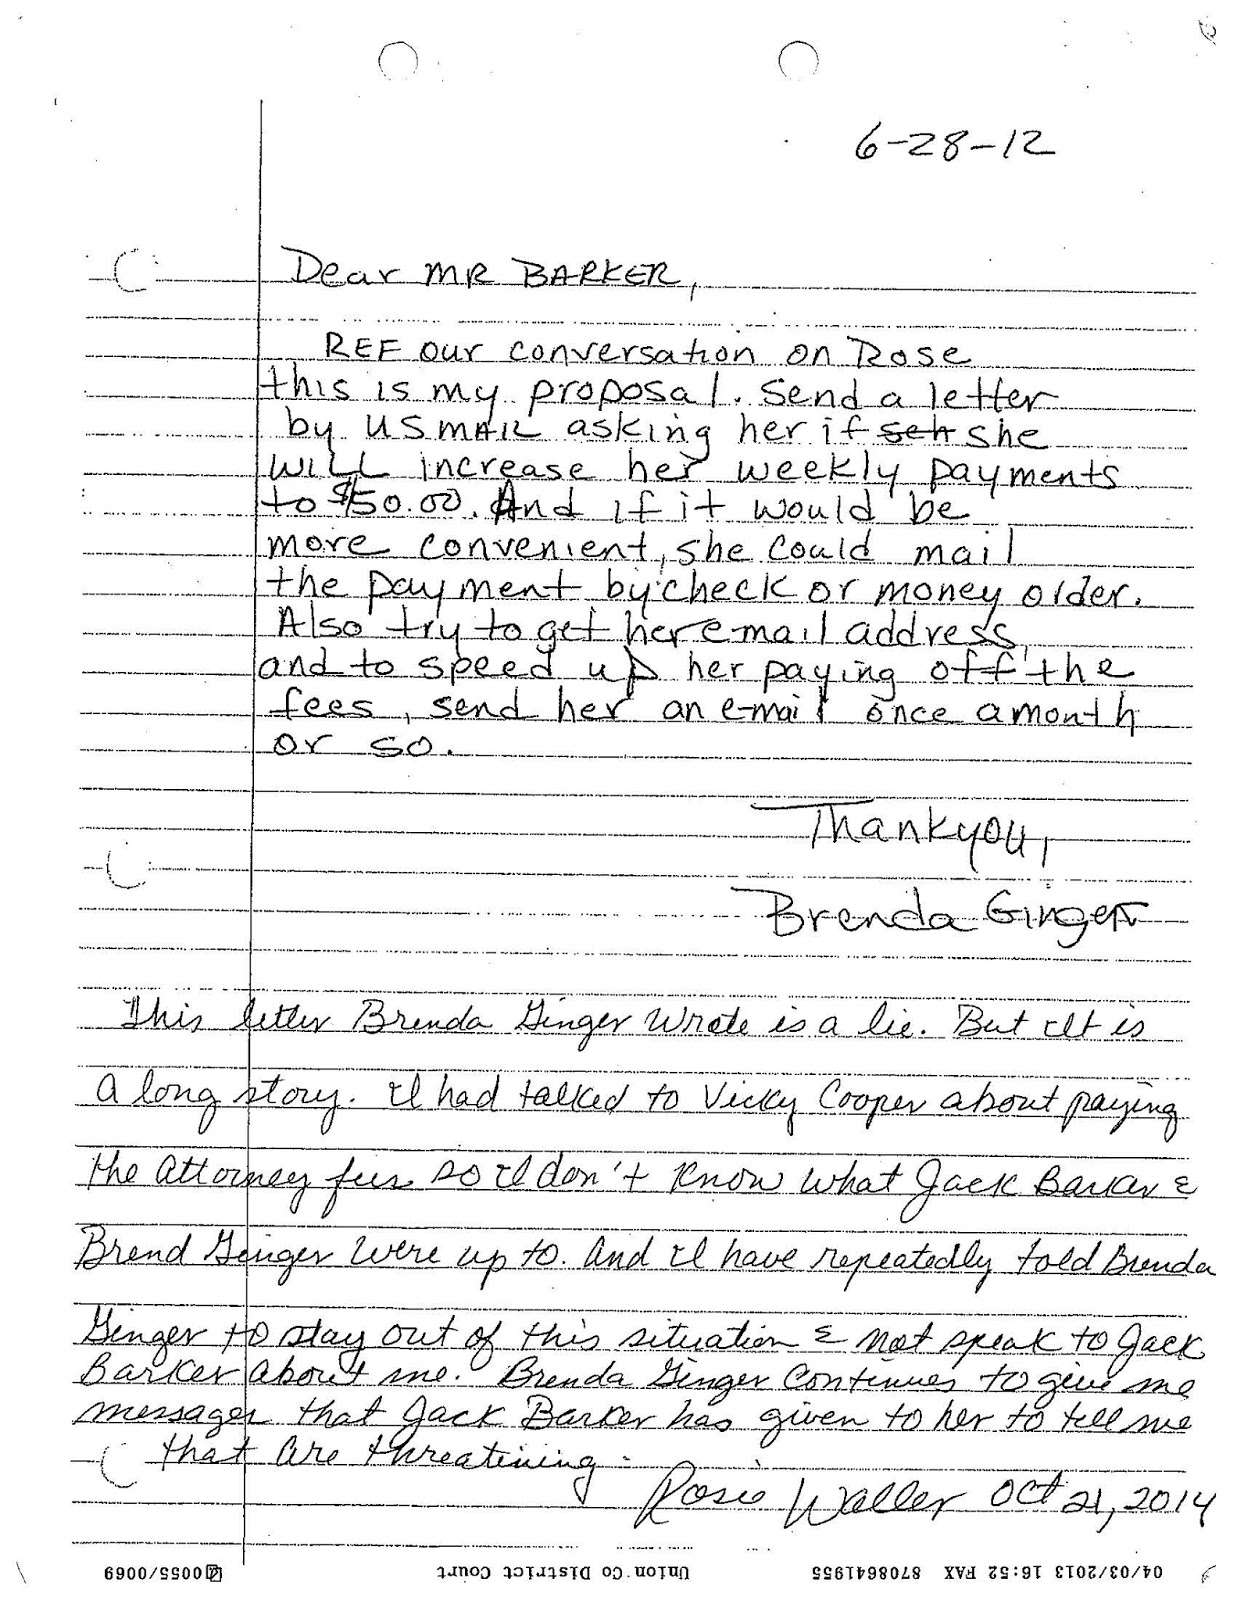 6-28-12
Dear MR BARKER,
REF our conversation on Rose
this is my proposal. Send a letter
by US MAIL asking her if seh she
WILL increase her weekly payments
to $50.00. And if it would be
more convenient, she could mail
the payment by check or money order.
Also try to get her email address,
and to speed up her paying off the
fees, send her an e-mail once a month
or so.
Thank you,
Brenda Ginger
This letter Brenda Ginger Wrote is a lie. But It is
a long story. I had talked to Vicky Cooper about paying
the attorney fees so I don't know what Jack Barker &
Brend Ginger were up to. And I have repeatedly told Brenda
Ginger to stay out of this situation & not speak to Jack
Barker about me. Brenda Ginger continues to give me
messages that Jack Barker has given to her to tell me
that are threatining.
Rosie Waller Oct 21, 2014
04/03/2013 16:52 FAX 8708641955 Union Co District Court 0055/0069